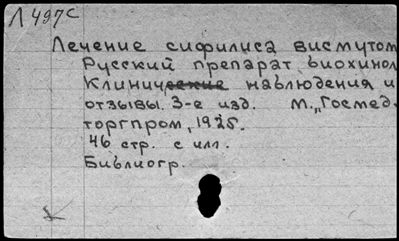 Л497с
Лечение сифилиса висмутом
Русский препарат биохинол
Клинические наблюдения и
отзывы. 3-е изд. М. „Госмед-
торгпром, 1925.
46 стр. с илл.
Библиогр.